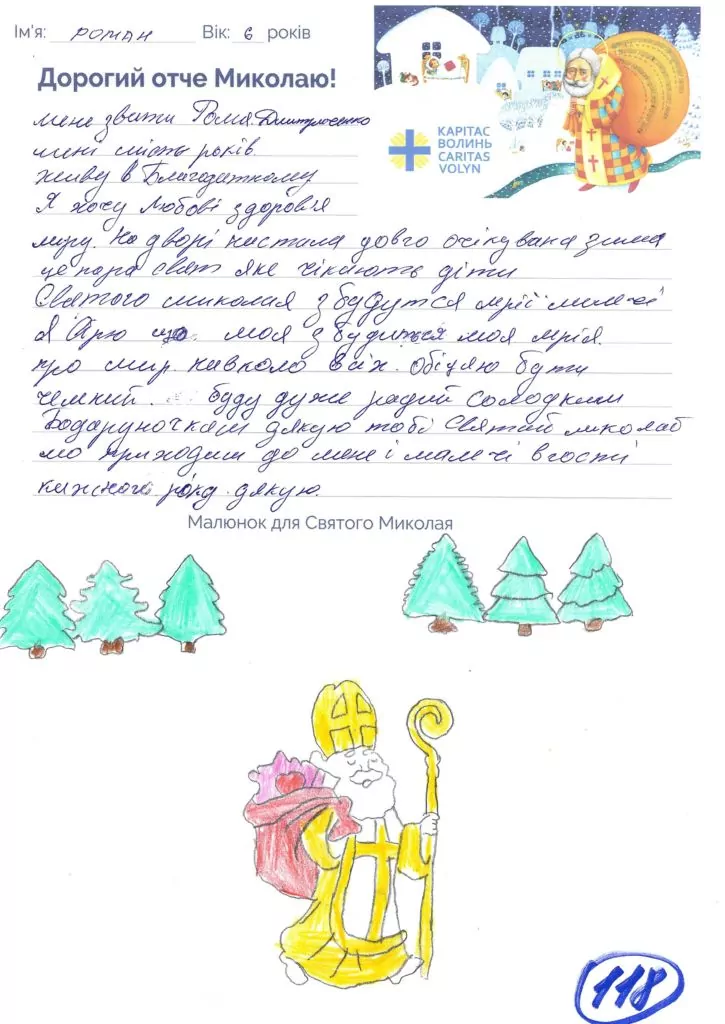 Ім'я: РОМАН Вік: 6 років
Дорогий отче Миколаю!
КАРІТАС
ВОЛИНЬ
CARITAS
VOLYN
мене звати Рома
мені шість років.
живу в Благодатному
Я хочу Любові здоров'я
миру. На дворі настала довго очікувана зима
це пора свят яке чікають діти
Святого миколая збудутся мрії
я що моя збудиться моя мрія.
про мир навколо всіх. обіцяю бути
чемний. буду дуже радий солодким
Подаруночкам дякую тобі Святий
приходиш до мене і малечі в гості
року. дякую.
Малюнок для Святого Миколая
118